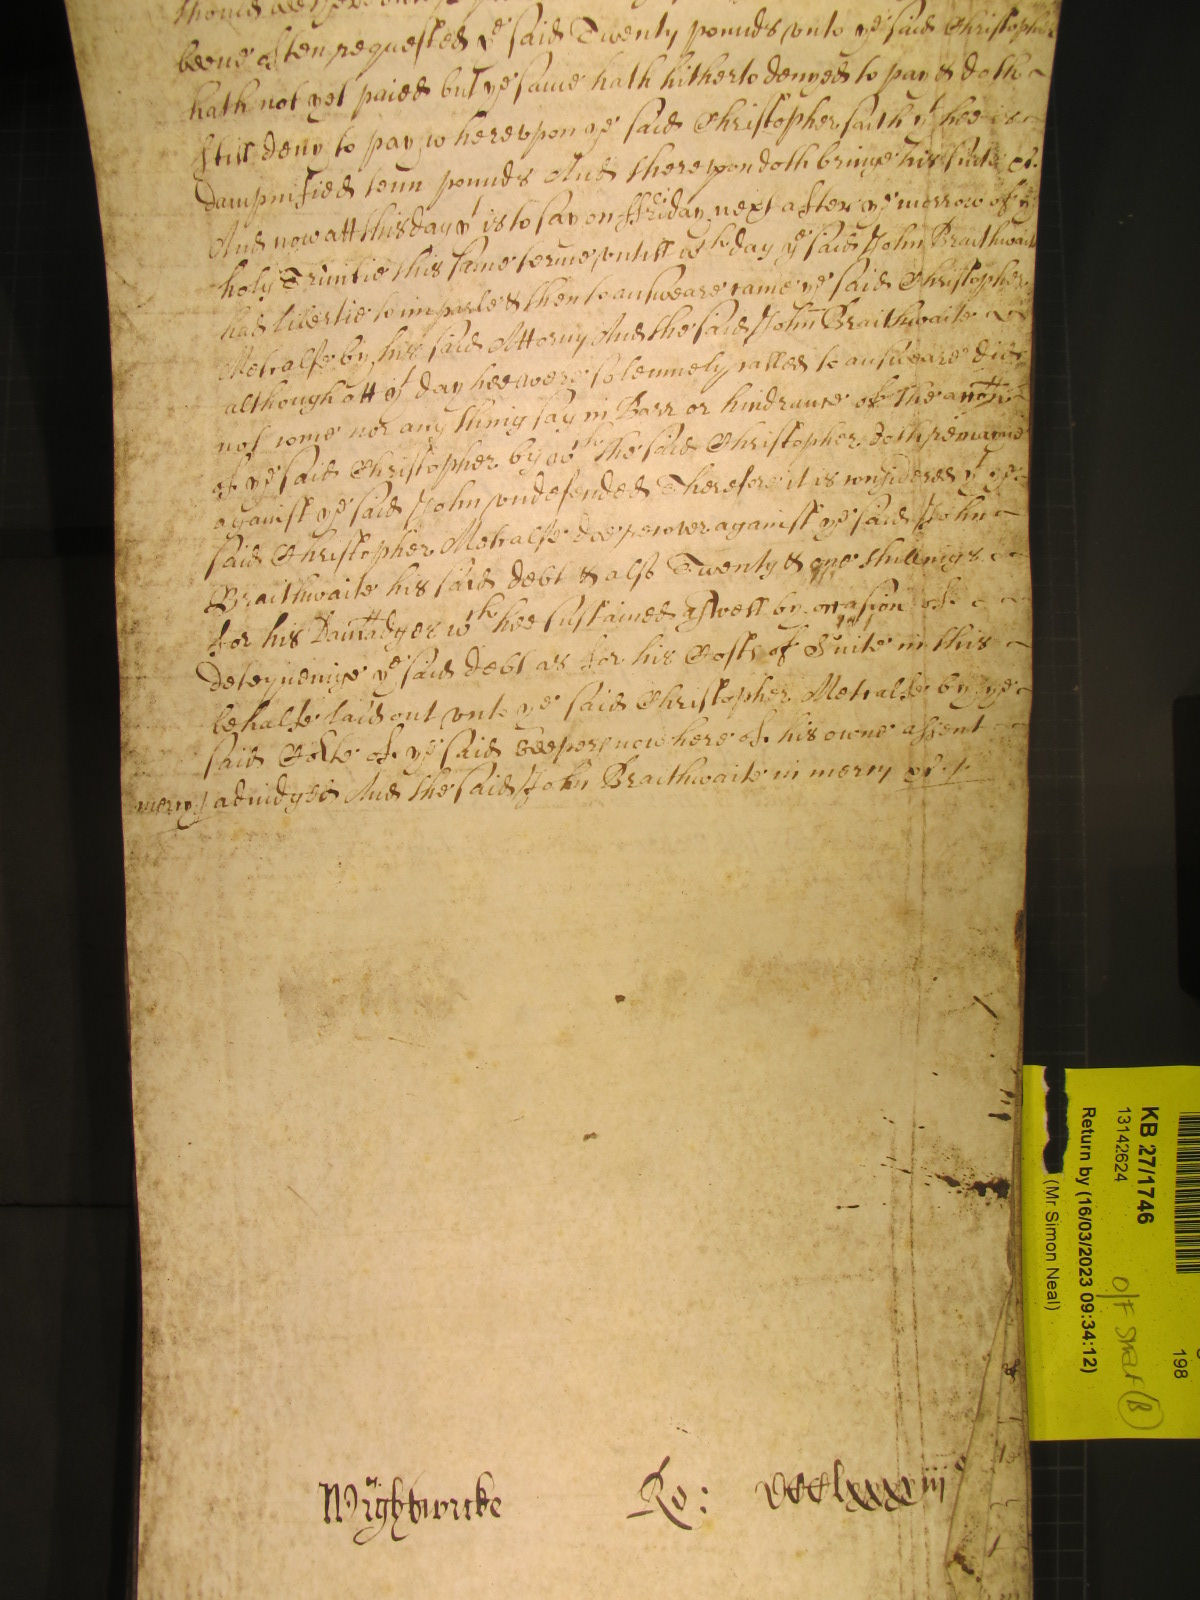 beene often requested ye said Twenty pounds vnto ye said Christopher
hath not yet paied but ye same hath hitherto denyed to pay & doth
still deny to pay wherevpon ye said Christopher saith yt hee is
dampnified tenn pounds And therevpon doth bringe his suite &c.
And now att this day yt is to say on ffriday next after ye morrow of ye
holy Trinitie this same terme vntill wch day ye said John Braithwaite
had libertie to imparle & then to answeare came ye said Christopher
Metcalfe by his said Attorny And the said John Braithwaite
although att yt day hee were solemnely called to answeare did
not come nor any thing say in Barr or hindrance of the accon
of ye said Christopher by wch the said Christopher doth remaine
against ye said John vndefended Therefore it is considered yt ye
said Christopher Metcalfe doe recover against ye said John
Braithwaite his said debt & also Twenty & one shillings
for his Damadges wch hee sustained aswell by occasion of
deteyneinge ye said debt as for his Costs of Suite in this
behalfe laid out vnto ye said Christopher Metcalfe by ye
said Co'te of ye said keepers now here of his owne assent
mercy adiudged And the said John Braithwaite in mercy &c.
Wightwicke Ro: DCClxxxxiiij
KB 27/1746
13142624
Return by (16/03/2023 09:34:12)
(Mr Simon Neal)
198